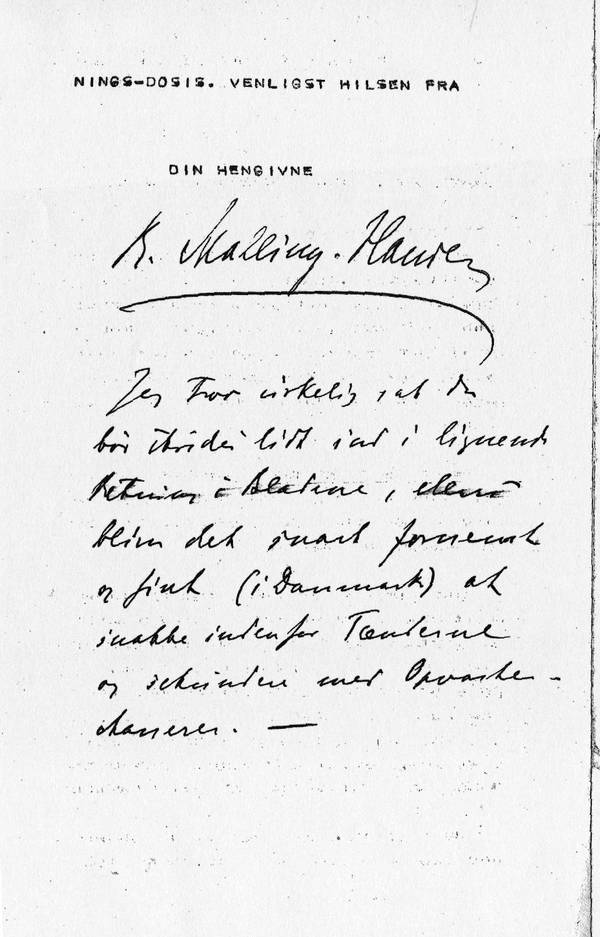 NINGS-DOSIS. VENLIGST HILSEN FRA
DIN HENGIVNE
R. Malling-Hansen
Jeg troer virkelig, at du
bør lidt ind i lignende
Retning i Bladene, ellers
bliver det snart fornemt
og fint (i Danmark) at
snakke indenfor Tænderne
og med Opvarter-